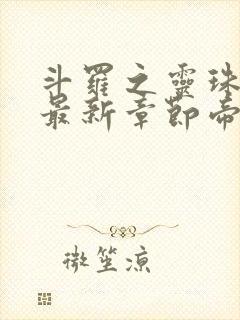 斗羅之靈珠
最新章節帝
微笙涼